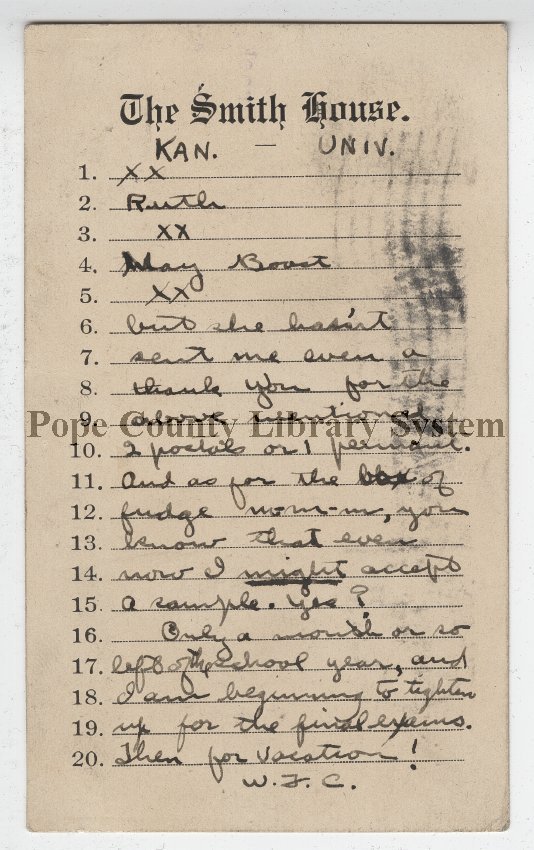 The Smith House.
KAN. — UNIV.
1. XX
2. Ruth
3. XX
4. May Boast
5. XX
6. but she hasn't
7. sent me even a
8. thank you for the
9. above mentioned
Pope County Library System
10. 2 postals or 1 pennant.
11. And as for the box of
12. fudge m-m-m, you
13. know that even
14. now I might accept
15. a sample. Yes?
16. Only a month or so
17. left of the school year, and
18. I am beginning to tighten
19. up for the final exams.
20. Then for vacation!
W.F.C.